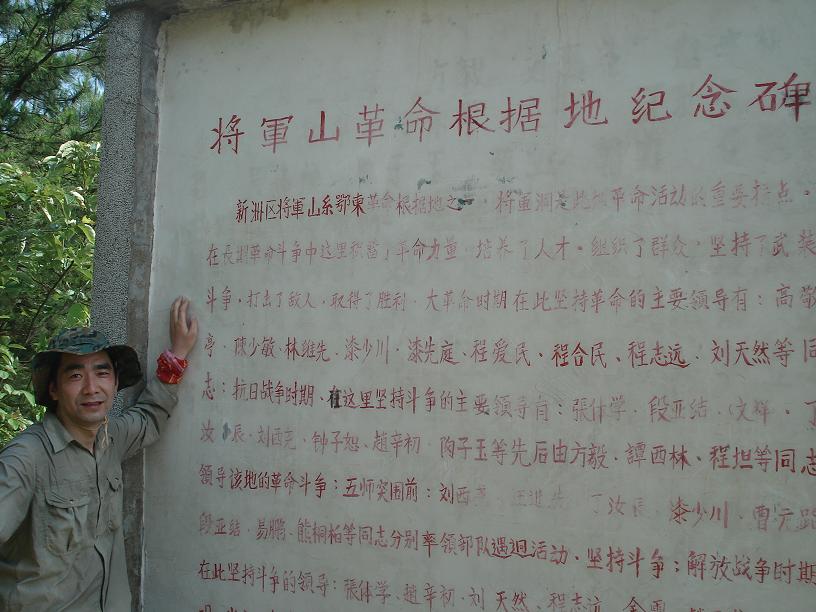 将軍山革命根据地纪念碑
新洲区将軍山系鄂東革命根据地之一，将軍洞是此地革命活动的重要据点。
在長期革命斗争中这里积蓄了革命力量，培养了人才，组织了群众，坚持了武装
斗争，打击了敌人，取得了胜利。大革命时期在此坚持革命的主要领导有：高敬
亭、陈少敏、林维先、漆少川、漆先庭、程爱民、程合民、程志远、刘天然等同
志；抗日战争时期、在这里坚持斗争的主要领导有：張体学、段亚结、文祥、丁
汝辰、刘西尧、钟子恕、趙辛初、陶子玉等先后由方毅、譚西林、程担等同志
领导该地的革命斗争；五师突围前：刘西尧、汪进先、丁汝辰、漆少川、曹元路
段亚结、易鹏、熊桐柏等同志分别率领部队遇迴活动、坚持斗争；解放战争时期
在此坚持斗争的领导：張体学、趙辛初、刘天然、程志远、